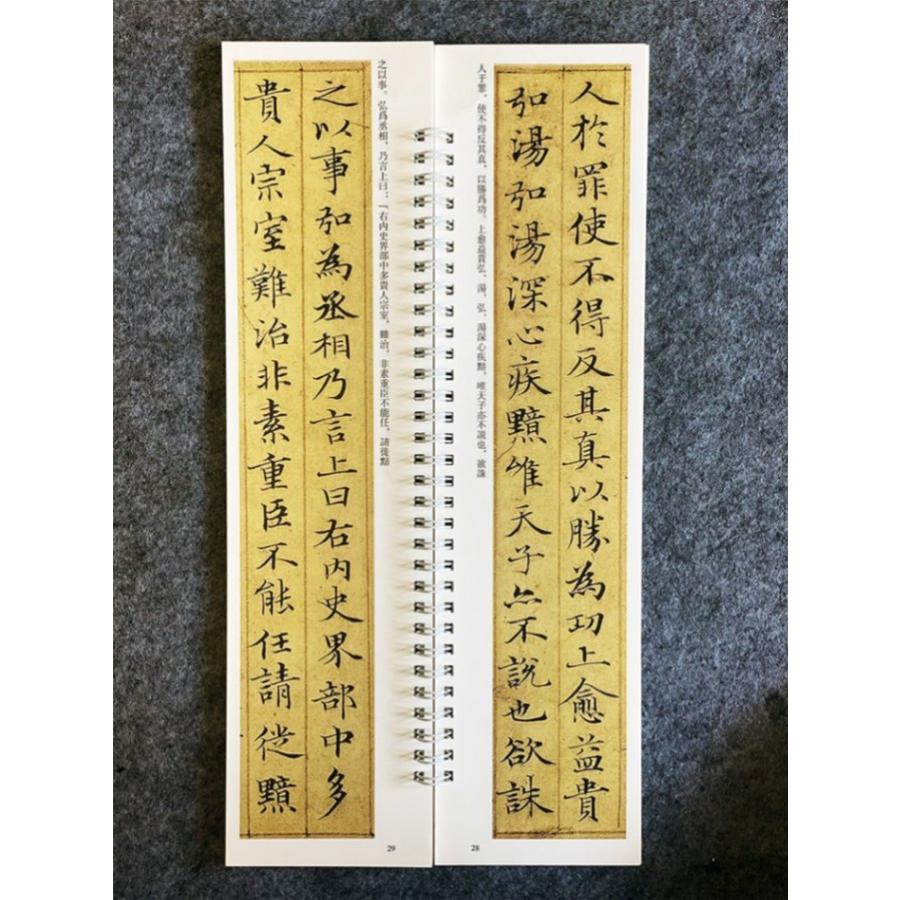 人於罪使不得反其真以勝為功上愈益貴
弘湯弘湯深心疾黯唯天子亦不說也欲誅
人于罪，使不得反其真，以勝爲功。上愈益貴弘、湯，弘、湯深心疾黯，唯天子亦不說也，欲誅
28
之以事弘為丞相乃言上曰右内史界部中多
貴人宗室難治非素重臣不能任請徙黯
之以事。弘爲丞相，乃言上曰：「右内史界部中多貴人宗室，難治，非素重臣不能任，請徙黯
29